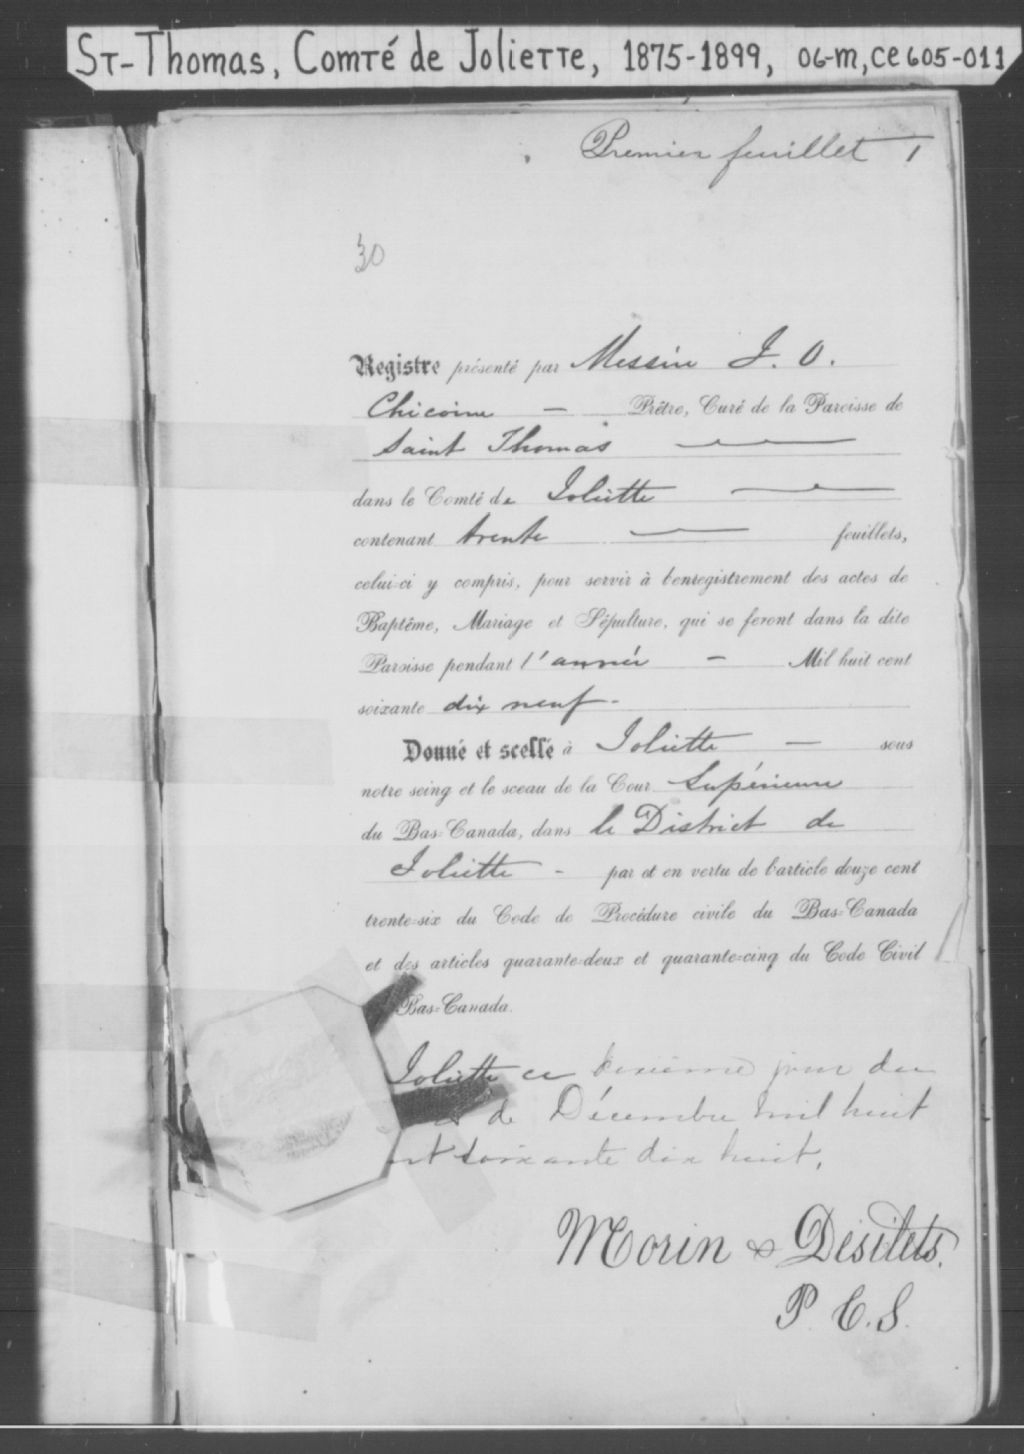 ST-Thomas, Comté de Joliette, 1875-1899, 06-M, CE605-011
Premier feuillet 1
30
Registre présenté par Messire J. O.
Chicoine — Prêtre, Curé de la Paroisse de
Saint Thomas —
dans le Comté de Joliette —
contenant trente — feuillets,
celui-ci y compris, pour servir à l'enregistrement des actes de
Baptême, Mariage et Sépulture, qui se feront dans la dite
Paroisse pendant l'année — Mil huit cent
soixante dix neuf -
Donné et scellé à Joliette — sous
notre seing et le sceau de la Cour Supérieure
du Bas-Canada, dans le District de
Joliette - par et en vertu de l'article douze cent
trente-six du Code de Procédure civile du Bas-Canada
et des articles quarante-deux et quarante-cinq du Code Civil
Bas-Canada.
Joliette ce jour du
de Décembre mil huit
nt soixante dix huit.
Morin & Désilets.
P. C. S.